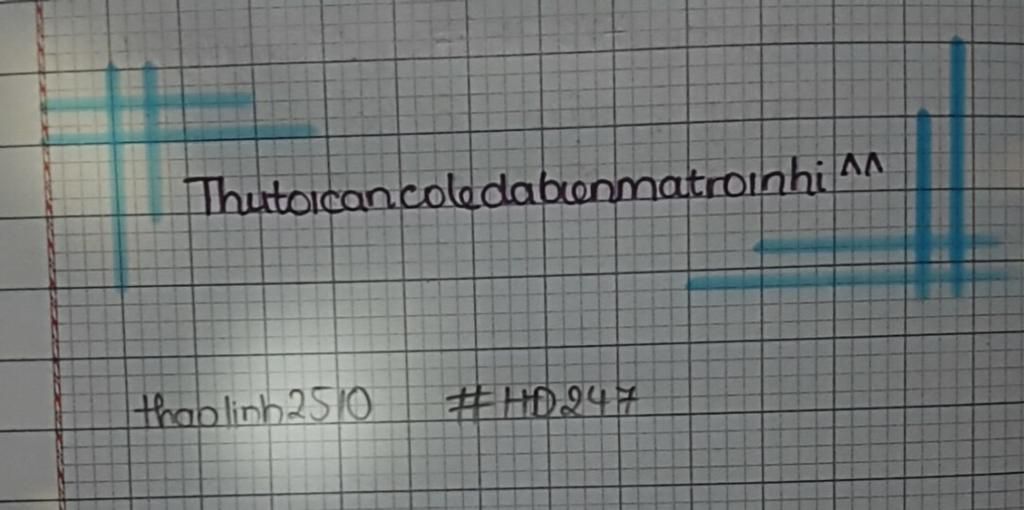 Thutoicancoledabienmatroinhi ^^
thaolinh2510 #HD247